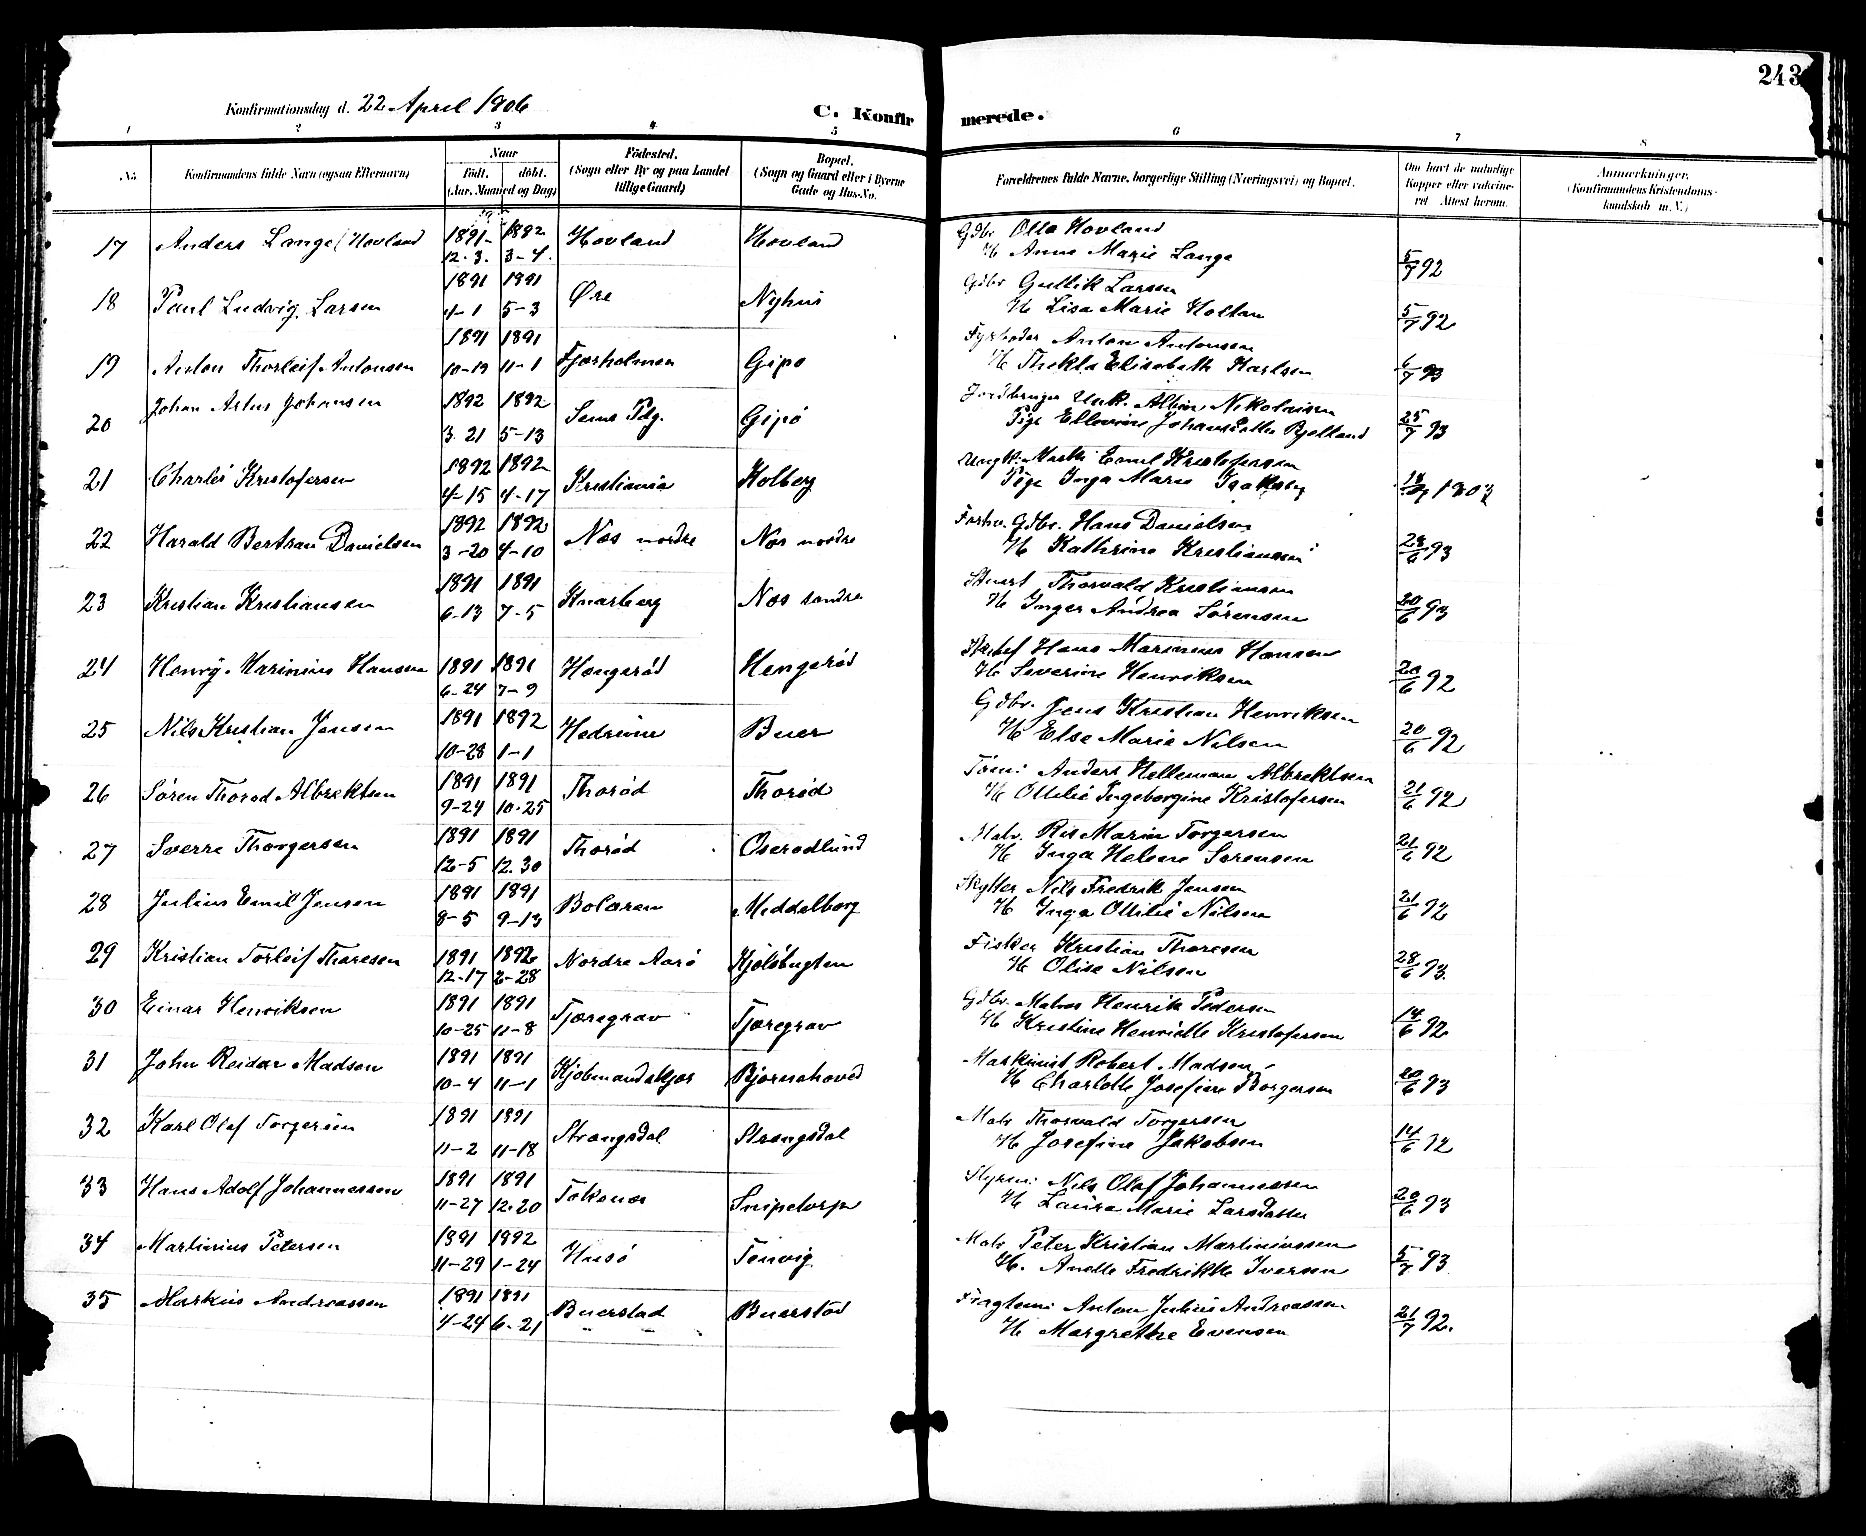 243
Konfirmationsdag d. 22 April 1906
C. Konfirmerede.
1 2 3 4 5 6 7 8
No. Konfirmandens fulde Navn (ogsaa Efternavn)
Naar
födt. döbt.
(Aar, Maaned og Dag)
Födested.
(Sogn eller By og paa Landet
tillige Gaard)
Bopæl.
(Sogn og Gaard eller i Byerne
Gade og Hus-No.
Forældrenes fulde Navne, borgerlige Stilling (Næringsvei) og Bopæl.
Om havt de naturlige
Kopper eller vakcine-
ret Attest herom.
Anmærkninger.
(Konfirmandens Kristendoms-
kundskab m. V.)
17 Anders Lange (Hovland 1891 1892 Hovland Hovland Gdbr Olla Hovland
12-3. 3-4. H Anne Marie Lange 5/7 92
18 Paul Ludvig Larsen 1891 1891 Øre Nyhus Gdbr Gullik Larsen
4-1 5-3 H Lisa Marie Holtan 5/7 92
19 Anton Thorleif Antonsen 1891 1891 Fjærholmen Gipø Fyrbøder Anton Antonsen
10-19 11-1 H Thekla Elisabeth Karlsen 6/7 93
20 Johan Artur Johansen 1892 1892 Sems Pdg. Gipö Jordbruger Unk. Albin Nikolaisen
3-21 5-13 Pige Ellevine Johansdatter Bjelland 25/7 93
21 Charles Kristofersen 1892 1892 Kristiania Holberg Ungk. Martin Emil Kristofersen
4-15 4-17 Pige Inga Marie
22 Harald Bertran Danielsen 1892 1892 Næs nordre Næs nordre Forhv. Gdbr. Hans Danielsen
3-20 4-10 H Kathrine Kristiansen 28/6 93
23 Kristian Kristiansen 1891 1891 Knarberg Næs søndre Stuert Thorvald Kristiansen
6-13 7-5 H Inger Andrea Sörensen 20/6 93
24 Henry Marinius Hansen 1891 1891 Hengsrød Hengsrød Hans Marinius Hansen
6-24 7-9 H Severine Henriksen 20/6 92
25 Nils Kristian Jensen 1891 1892 Hedrum Buer Gdbr. Jens Kristian Henriksen
10-28 1-1 H Else Marie Nilsen 20/6 92
26 Søren Thorod Albrektsen 1891 1891 Thorød Thorød Tøm: Anders Helleman Albrektsen
9-24 10-25 H Ottilie Ingeborgine Kristofersen 21/6 92
27 Sverre Thorgersen 1891 1891 Thorød Oserødlund Matr. Marin Torgersen
12-5 12.30 H Inga Helene Sørensen 21/6 92
28 Julius Emil Jensen 1891 1891 Bolæren Meddelborg Skytter Nils Fredrik Jensen
8-5 9-13 H Inga Ottilie Nilsen 21/6 92
29 Kristian Torleif Thoresen 1891 1892 Nordre Aarö Kjøløbugten Fisker Kristian Thoresen
12-17 2-28 H Olise Nilsen 28/6 93.
30 Einar Henriksen 1891 1891 Tjæregrav Tjæregrav Gdbr. Matros Henrik Pedersen
10-25 11-8 H Kristine Henriette Kristofersen 14/6 92
31 John Reidar Madsen 1891 1891 Kjöbmandskjær Bjørnehoved Maskinist Robert Madsen
10-4 11-1 H Charlotte Josefine Borgersen 20/6 93
32 Karl Olaf Torgersen 1891 1891 Strengsdal Strengsdal Matr Thorvald Torgersen
11-2 11-18 H Josefine Jakobsen 14/6 92
33 Hans Adolf Johannessen 1891 1891 Tokenes Snipetorp Styrm: Nils Olaf Johannessen
11-27 12.20 H Laura Marie Larsdatter 20/6 93
34 Martinius Petersen 1891 1892 Husö Tenvig Matr Peter Kristian Martiniussen
11-29 1-24 H. Anette Fredrikke Iversen 5/7 93
35 Markus Andreassen 1891 1891 Buerstad Buerstad Anton Julius Andreassen
4-24 6-21 H Margrethe Evensen 21/7 92.